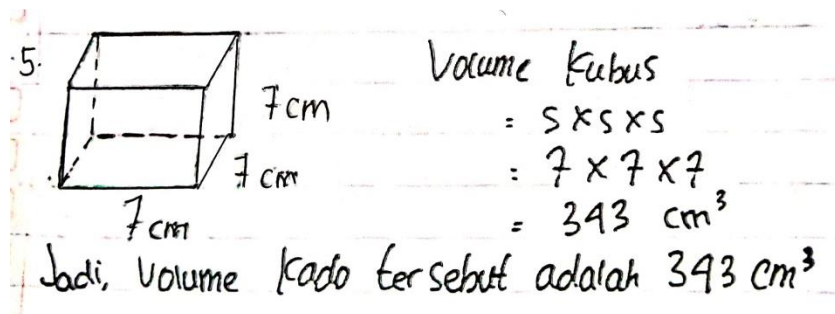 5.
7 cm
7 cm
7 cm
Volume Kubus
= s x s x s
= 7 x 7 x 7
= 343 cm³
Jadi, Volume Kado tersebut adalah 343 cm³